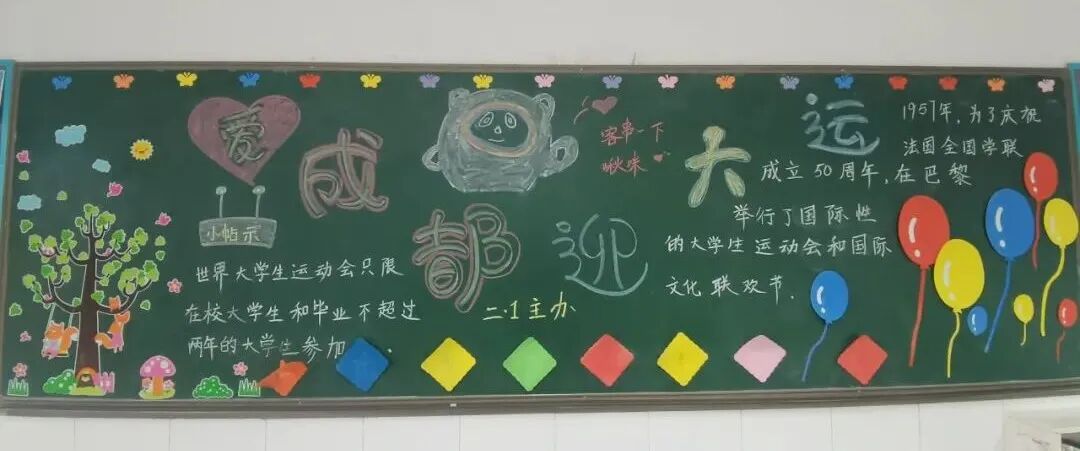 爱成都迎大运
客串一下
啾咪
小帖示
世界大学生运动会只限
在校大学生和毕业不超过
两年的大学生参加
二·1主办
1957年，为了庆祝
法国全国学联
成立50周年，在巴黎
举行了国际性
的大学生运动会和国际
文化联欢节.